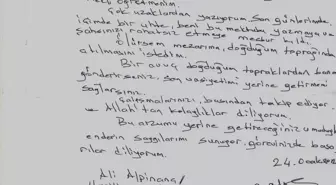 öğretmenim.
Çok uzaklardan yazıyorum. Son günlerimde,
içimde bir ukde, beni bu mektubu yazmaya ve
şahsınızı rahatsız etmeye mecbur kıldı.
Ölürsem mezarıma, doğduğum toprağında
atılmasını istedim.
Bir avuç doğduğum topraklardan bana
gönderirseniz, son vasiyetimi yerine getirmemi
sağlarsınız.
Çalışmalarınızı, basından takip ediyor
Allah'tan kolaylıklar diliyorum.
Bu arzumu yerine getireceğiniz umuduyla
enderin saygılarımı sunuyor, görevinizde başa
rılar diliyorum.
24.Ocak
Ali Alpinanç/